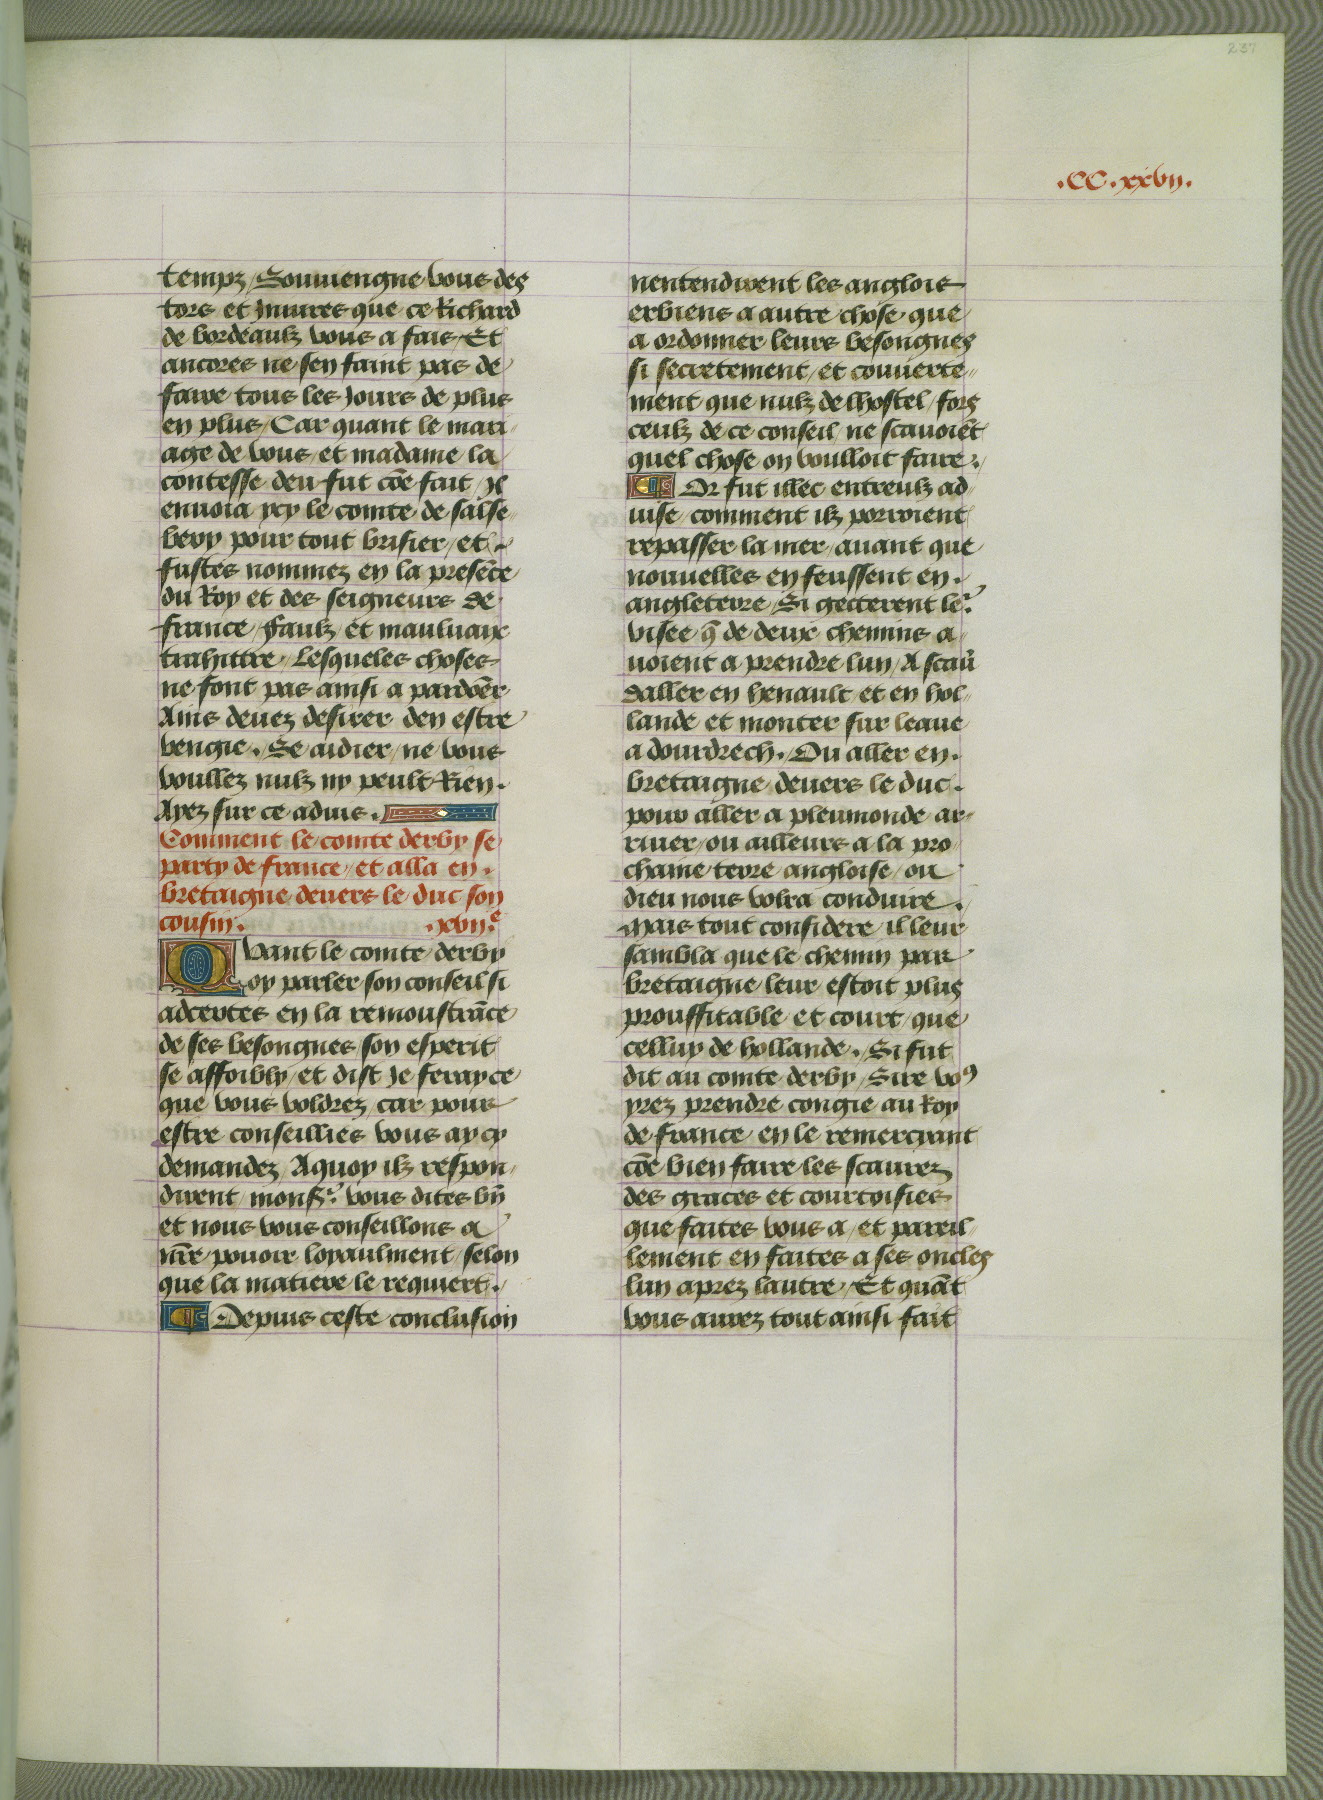 237
.CC.xxvij.
tempz / Souuiengne vous des
tors et Iniures que ce Richard
de bordeaulz vous a fais / Et
ancores ne sen faint pas de
faire tous les Jours de plus
en plus / Car quant le mari
age de vous / et madame la
contesse deu fut cōe fait / Il
enuoia ycy le comte de salse
bery pour tout brisier / et
fustes nommez en la presēce
du Roy et des seigneurs de
france / faulz et mauluaix
trahittre / Lesqueles choses
ne font pas ainsi a pardōer
Ains deuez desirer den estre
vengie . Se aidier / ne vous
voullez nulz ny peult Rien .
Ayez sur ce aduis .
Comment le comte derby se
party de france / et alla en .
bretaigne deuers le duc son
cousin . .xvij.e
Quant le comte derby
oy parler son conseil si
adcertes en la remoustrāce
de ses besongnes / son esperit
se affoibly / et dist Je feray ce
que vous voldrez / car pour
estre conseillies vous ay cy
demandez / A quoy ilz respon
dirent / monsr. vous dites bn̄
et nous vous conseillons a
nr̄e / pouoir loyaulment / selon
que la matiere le requiert .
Depuis ceste conclusion
nentendirent les anglois
erbiens a autre chose que
a ordonner leurs besongnes
si secretement / et couuerte
ment que nulz de lhostel / fors
ceulz de ce conseil / ne scauoiēt
quel chose on voulloit faire .
Or fut illec entreulz ad
uise / comment ilz porroient
repasser la mer / auant que
nouuelles en feussent en .
angleterre / Si getterent le
visee / q̄ de deux chemins a
uoient a prendre lun / A scau
daller en henault et en hol
lande et monter sur leaue
a dourdrech . Ou aller en .
bretaigne deuers le duc .
pour aller a pleumonde ar
riuer / ou ailleurs a la pro
chaine terre angloise / ou
dieu nous volra conduire .
Mais tout considere / il leur
sambla que le chemin par
bretaigne leur estoit plus
prouffitable et court / que
celluy de hollande . Si fut
dit au comte derby / Sire vo9
yrez prendre congie au Roy
de france / en le remerciant
cōe bien faire les scaurez
des graces et courtoisies
que faites vous a / et pareil
lement en faites a ses oncles
lun aprez lautre / Et quāt
vous aurez tout ainsi fait